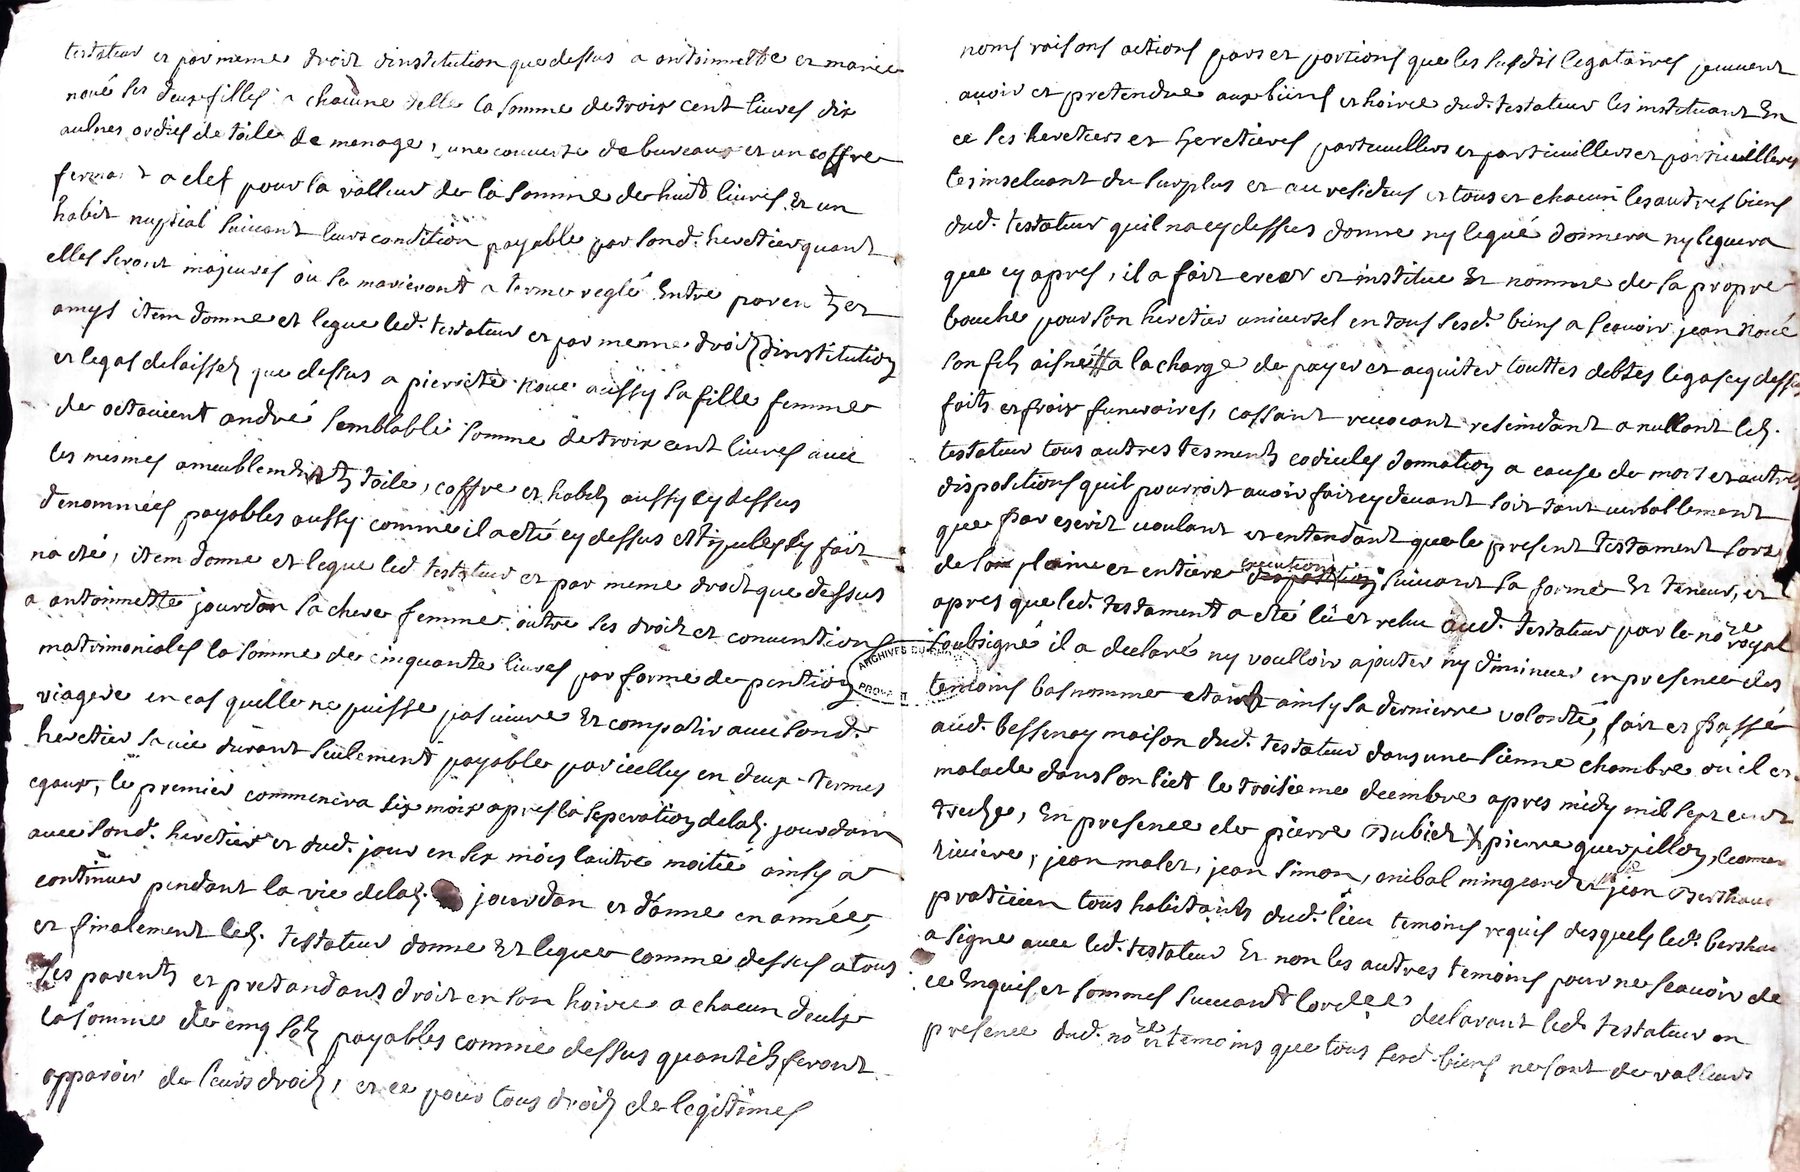 testateur et par meme droit dinstitution que dessus a anthoinnette et mariee
noué ses deux filles a chacune delle la somme de trois cent livres dix
aulnes ordies de toile de menage, une couverte de bureaux et un coffre
fermant a clef pour la valleur de la somme de huit livres et un
habit nuptial suivant leurs condition payable par sond. heretier quant
elles seront majeures ou se marieront a terme reglé entre parentz et
amys item donne et legue led. testateur et par meme droitz dinstitution
et legat delaissez que dessus a pierrette noue aussy sa fille femme
de octavient andré semblable somme de trois cent livres avec
les mesmes ameublementz toile, coffre et habitz aussy cy dessus
denommées payables aussy comme il a eté cy dessus stipules sy fait
na eté, item donne et legue led. testateur et par meme droit que dessus
a antoinnette jourdan sa chere femme outre ses droit et convention
matrimoniales la somme de cinquante livres par forme de pention
viagere en cas quelle ne puisse pas vivre et compatir avec sond.
heretier sa vie durant seulement payable par icelluy en deux termes
egaux, le premier commencera six mois apres la seperation de lad. jourdain
avec sond. heretier et dud. jour en six mois lautre moitié ainsy a
continuer pendant la vie de lad. jourdan et danne en année,
et finalement led. testateur donne et legue comme dessus a tous
ses parentz et pretandant droit en son hoirie a chacun deulx
la somme de cinq solz payables comme dessus quant ilz feront
apparoir de leurs droitz, et ce pour tous droitz de legitimes
noms raisons actions pars et portions que les susdis legataires peuvent
avoir et pretendre aux biens et hoirie dud. testateur les instituant en
ce ses heretiers et heretieres particulliers et particulliers et particullieres
les inscluant du surplus et au residus et tous et chacun les autres biens
dud. testateur quil na cy dessus donne ny legué donnera ny leguera
que cy apres, il a fait creer et institue et nomme de sa propre
bouche pour son heretier universel en tous sesd. biens a scavoir jean noué
son filz aisné a la charge de payer et acquiter touttes debtes legas cy dessus
faits et frais funeraires, cassant revocant resindant anullant led.
testateur tous autres tesments codicilles donnation a cause de mort et autres
dispositions quil pourroit avoir fait cy devant soit tant verballement
que par escrit voulant et entendant que le present testament sorte
de son plaine et entiere execution suivant sa forme et teneur, et
apres que led. testament a eté lü et relu aud. testateur par le nore royal
soubsigné il a declaré ny voulloir ajouter ny diminuer en presence des
temoins bas nomme etant ainsy sa derniere volonté, fait et passé
aud. bessenay maison dud. testateur dans une sienne chambre ou il est
malade dans son lict le troisieme decembre apres midy mil sept cent
treize, en presence de pierre Dubiet pierre querpillon, leonard
riviere, jean malet, jean simon, anibal mingeard et jean Berthaud
praticien tous habitants dud. lieu temoins requis desquels led. berthaud
a signe avec led. testateur et non les autres temoins pour ne scavoir de
ce enquis et sommes suivant lordce declarant led. testateur en
presence dud. nore et temoins que tous sesd. biens ne sont de valleur
ARCHIVES DU